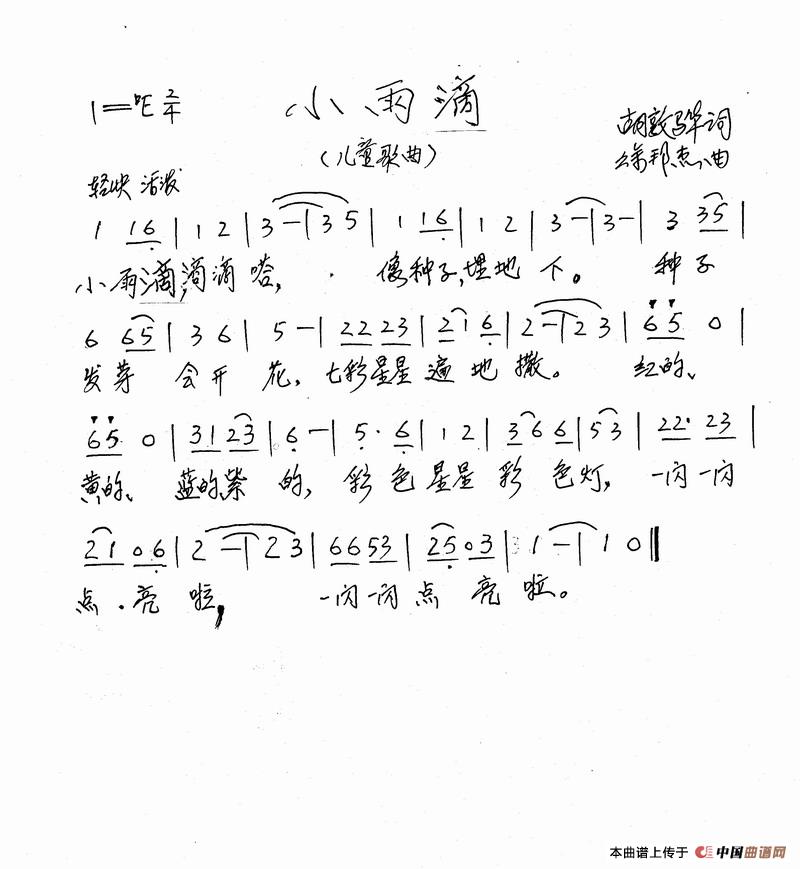 1=♭E 2/4 小雨滴
(儿童歌曲)
胡敦骅词
徐邦杰曲
轻快 活泼
1 16 | 1 2 | 3 — | 3 5 | 1 16 | 1 2 | 3 — | 3 — | 3 35 |
小雨滴,滴滴嗒, 像种子,埋地下。 种子
6 65 | 3 6 | 5 — | 22 23 | 21 6 | 2 — | 2 3 | 65 0 |
发芽 会开花,七彩星星遍地撒。 红的、
65 0 | 31 23 | 6 — | 5· 6 | 1 2 | 36 6 | 53 | 22· 23 |
黄的、蓝的紫的,彩色星星彩色灯,一闪一闪
21 06 | 2 — | 2 3 | 66 53 | 25 03 | 1 — | 1 0 ‖
点·亮啦, 一闪一闪点亮啦。
本曲谱上传于 中国曲谱网